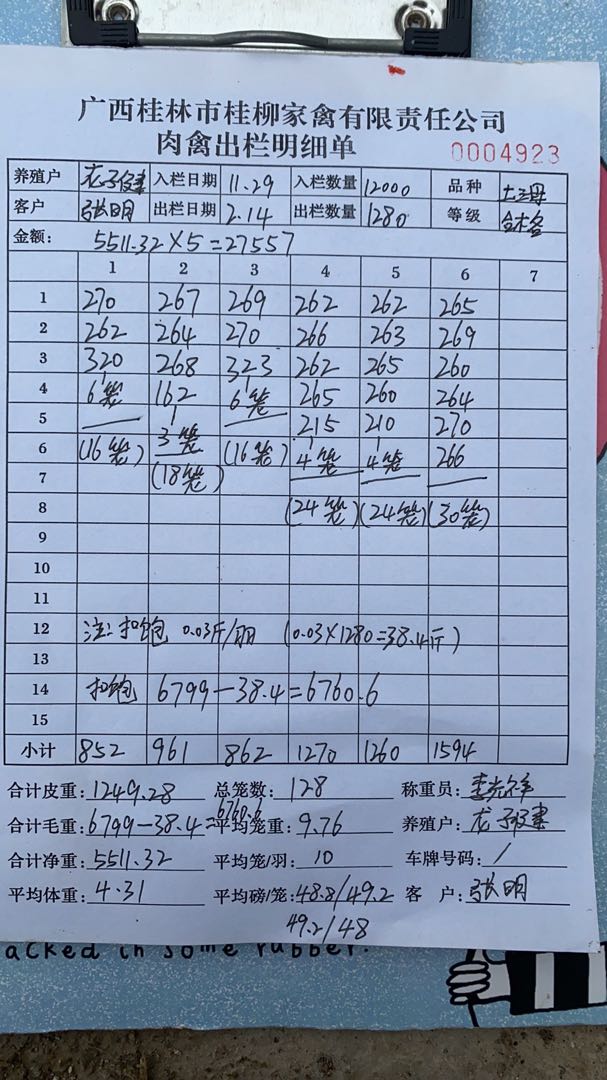 广西桂林市桂柳家禽有限责任公司
肉禽出栏明细单 0004923
养殖户 龙子健 入栏日期 11.29 入栏数量 12000 品种 土三母
客户 张明 出栏日期 2.14 出栏数量 1280 等级 合格
金额: 5511.32×5=27557
1 2 3 4 5 6 7
1 270 267 269 262 262 265
2 262 264 270 266 263 269
3 320 268 323 262 265 260
4 6笼 162 6笼 265 260 264
5 3笼 215 210 270
6 (16笼) (16笼) 4笼 4笼 266
7 (18笼)
8 (24笼) (24笼) (30笼)
9
10
11
12 注:扣饱 0.03斤/羽 (0.03×1280=38.4斤)
13
14 扣饱 6799-38.4=6760.6
15
小计 852 961 862 1270 1260 1594
合计皮重: 1249.28 总笼数: 128 称重员:
合计毛重: 6799-38.4=6760.6 平均笼重: 9.76 养殖户: 龙子健
合计净重: 5511.32 平均笼/羽: 10 车牌号码: /
平均体重: 4.31 平均磅/笼: 48.8/49.2 客户: 张明
49.2/48
acked in some rubber.